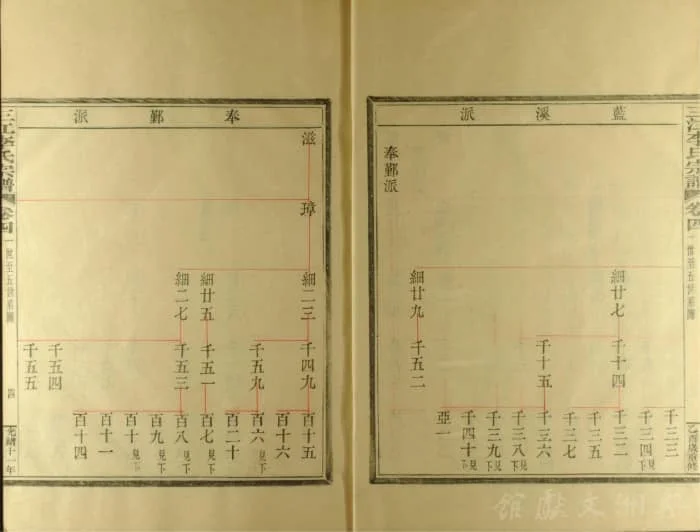 三江李氏宗譜 卷四 一世至五世系圖 乙酉歲重修
藍溪派
千三三
千三四見下
細廿七 千十四 千三二
千三五
千三七
千十五 千三六
千三八見下
千三九見下
千四十見下
亞一
細廿九 千五二
奉鄞派
奉鄞派
滋 璋 細二三 千四九 百十五
百十六
千五九 百六見下
百二十
細廿五 千五一 百七見下
細二七 千五三 百八見下
百九見下
百十見下
百十一
百十四
千五四
千五五
三江李氏宗譜 卷四 一世至五世系圖 四 光緒十一年
洲文獻館